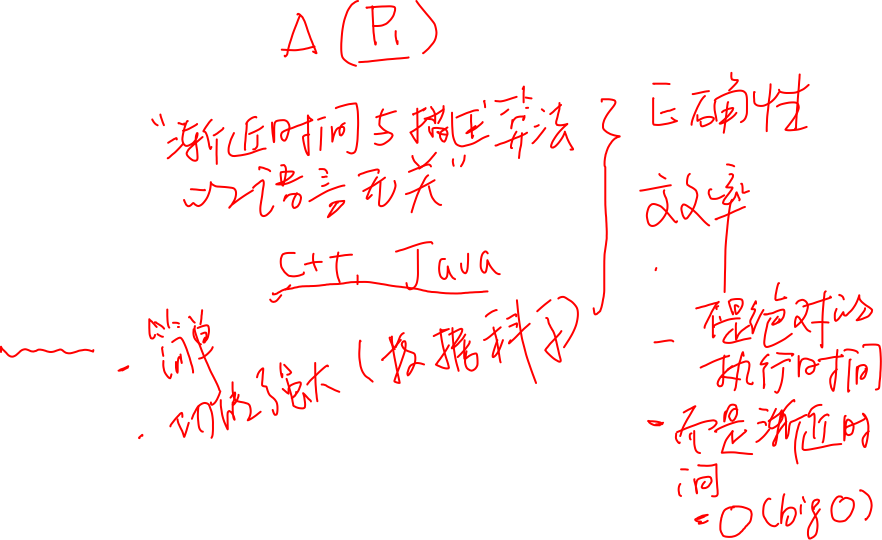 A(P1)
"渐近时间与描述算法
的语言无关"
C++, Java
- 简单
· 功能强大(数据科学)
正确性
效率
- 不是绝对的
执行时间
- 而是渐近时
间
= O(big O)